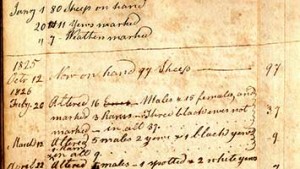 Jany 1 80 Sheep on hand
20 11 Yews marked
" 7 - Weathers marked
1825
Octr 12 Now on hand 97 Sheep — 97
1826
Feby. 28 Altered 16 Males & 15 females, and
marked 3 Rams - Three black ewes not
marked — in all 37. 37
March 13 Altered 5 males 2 yews & 1 black yews
in all 9. 9
April 22 Altered 5 males - 1 spotted & 2 white yews